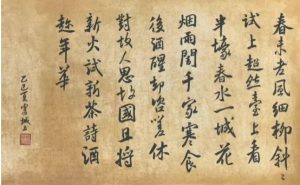 春未老風細柳斜〻
試上超然臺上看
半壕春水一城花
烟雨闇千家寒食
後酒醒卻咨嗟休
對故人思故國且將
新火試新茶詩酒
趁年華
乙巳夏